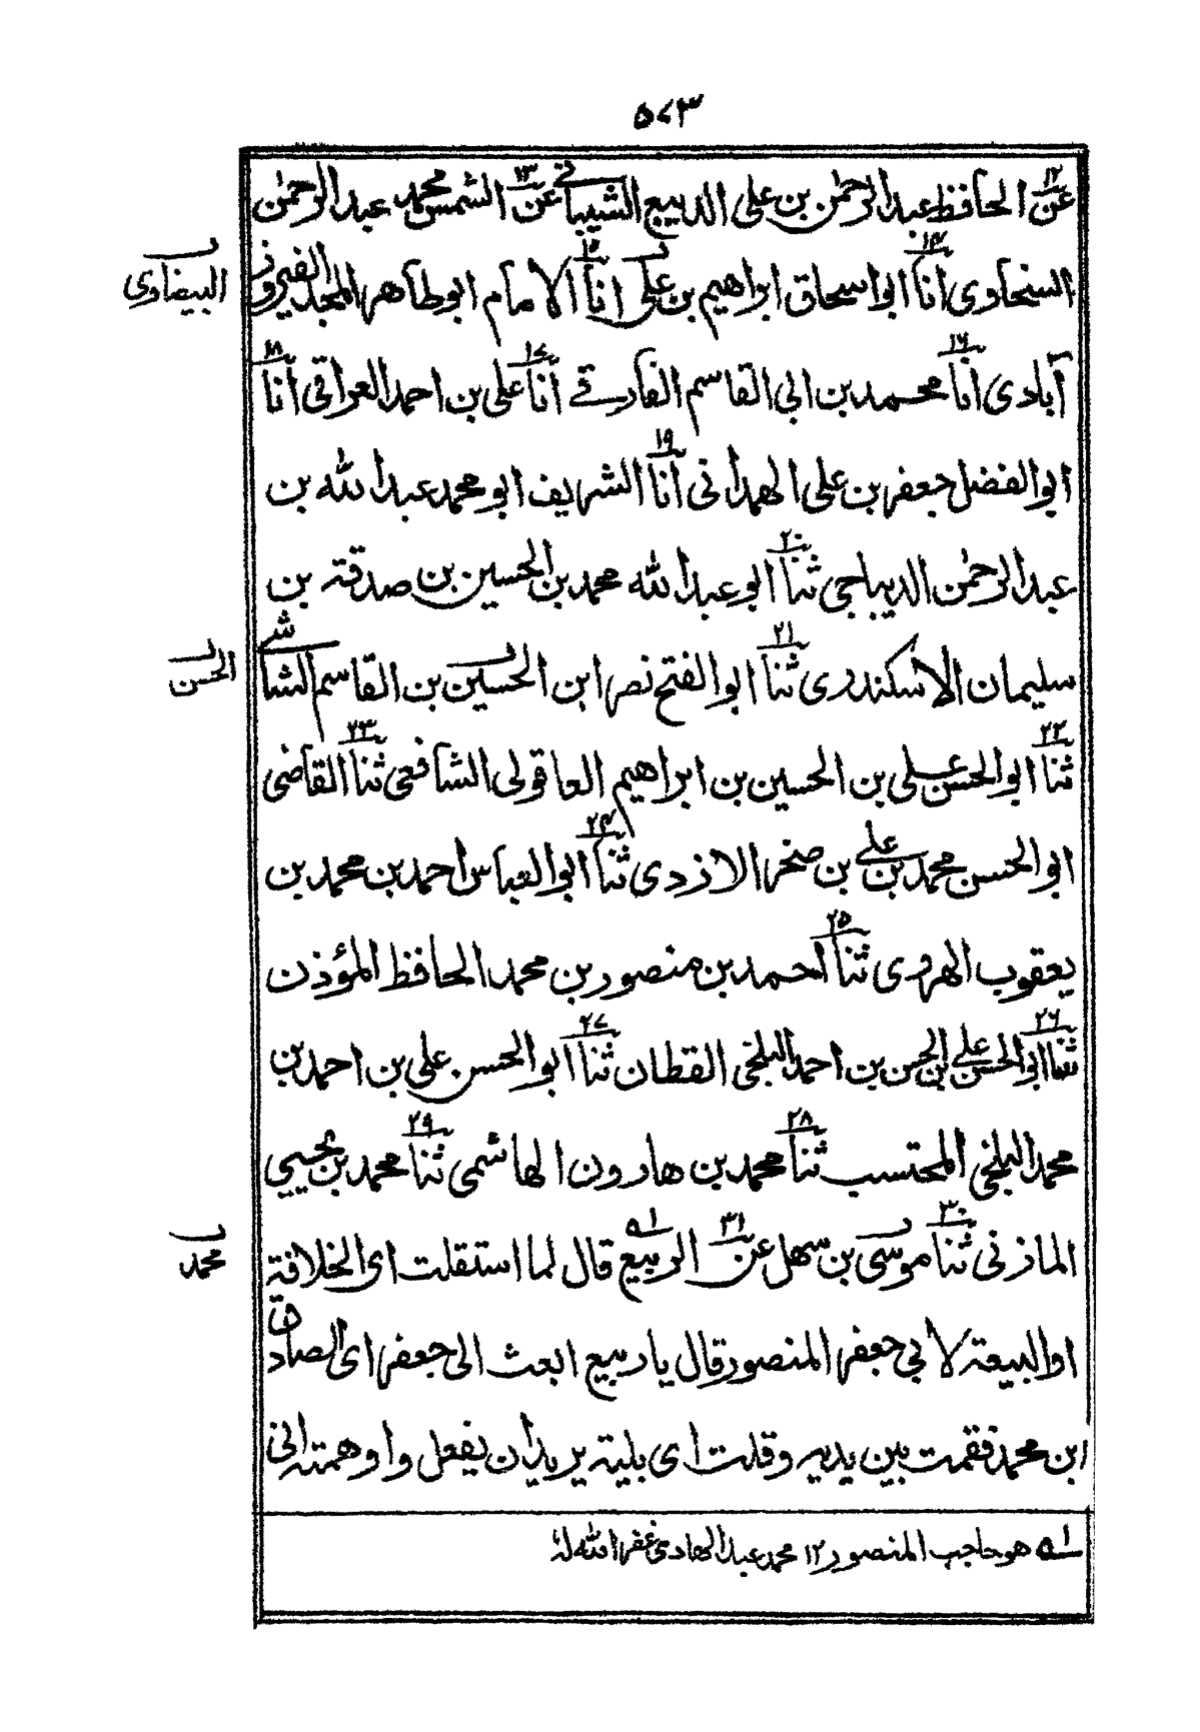 ٥٧٣
عن ١٢ الحافظ عبد الرحمٰن بن علی الديبع الشيبانے عن ١٣ الشمس محمد عبد الرحمٰن
السخاوی انا ١٤ ابو اسحاق ابراهيم بن علی انا ١٥ الامام ابو طاهر المجد الفيروز
البيضاوی
آبادی انا ١٦ محمد بن ابی القاسم الفارقے انا ١٧ علی بن احمد العراقی انا ١٨
ابو الفضل جعفر بن علی الهمدانی انا ١٩ الشريف ابو محمد عبد الله بن
عبد الرحمٰن الديباجی ثنا ٢٠ ابو عبد الله محمد بن الحسين بن صدقة بن
سليمان الاسكندری ثنا ٢١ ابو الفتح نصر ابن الحسين بن القاسم الشاشے
الحسن
ثنا ٢٢ ابو الحسن علی بن الحسين بن ابراهيم العاقولی الشافعی ثنا ٢٣ القاضی
ابو الحسن محمد بن علے بن صخر الازدی ثنا ٢٤ ابو العباس احمد بن محمد بن
يعقوب الهروی ثنا ٢٥ احمد بن منصور بن محمد الحافظ المؤذن
ثنا ٢٦ ابو الحسن علے بن الحسن بن احمد البلخی القطان ثنا ٢٧ ابو الحسن علی بن احمد بن
محمد البلخی المحتسب ثنا ٢٨ محمد بن هارون الهاشمی ثنا ٢٩ محمد بن يحيی
المازنی ثنا ٣٠ موسی بن سهل عن ٣١ الربيع ١ه قال لما استقلت ای الخلافة
محمد
او البيعة لابی جعفر المنصور قال يا ربيع ابعث الی جعفر ای الصادق
ابن محمد فقمت بين يديه وقلت ای بلية يريد ان يفعل واوهمته انی
١ه هو حاجب المنصور ١٢ محمد عبد الهادی غفر الله لهٗ